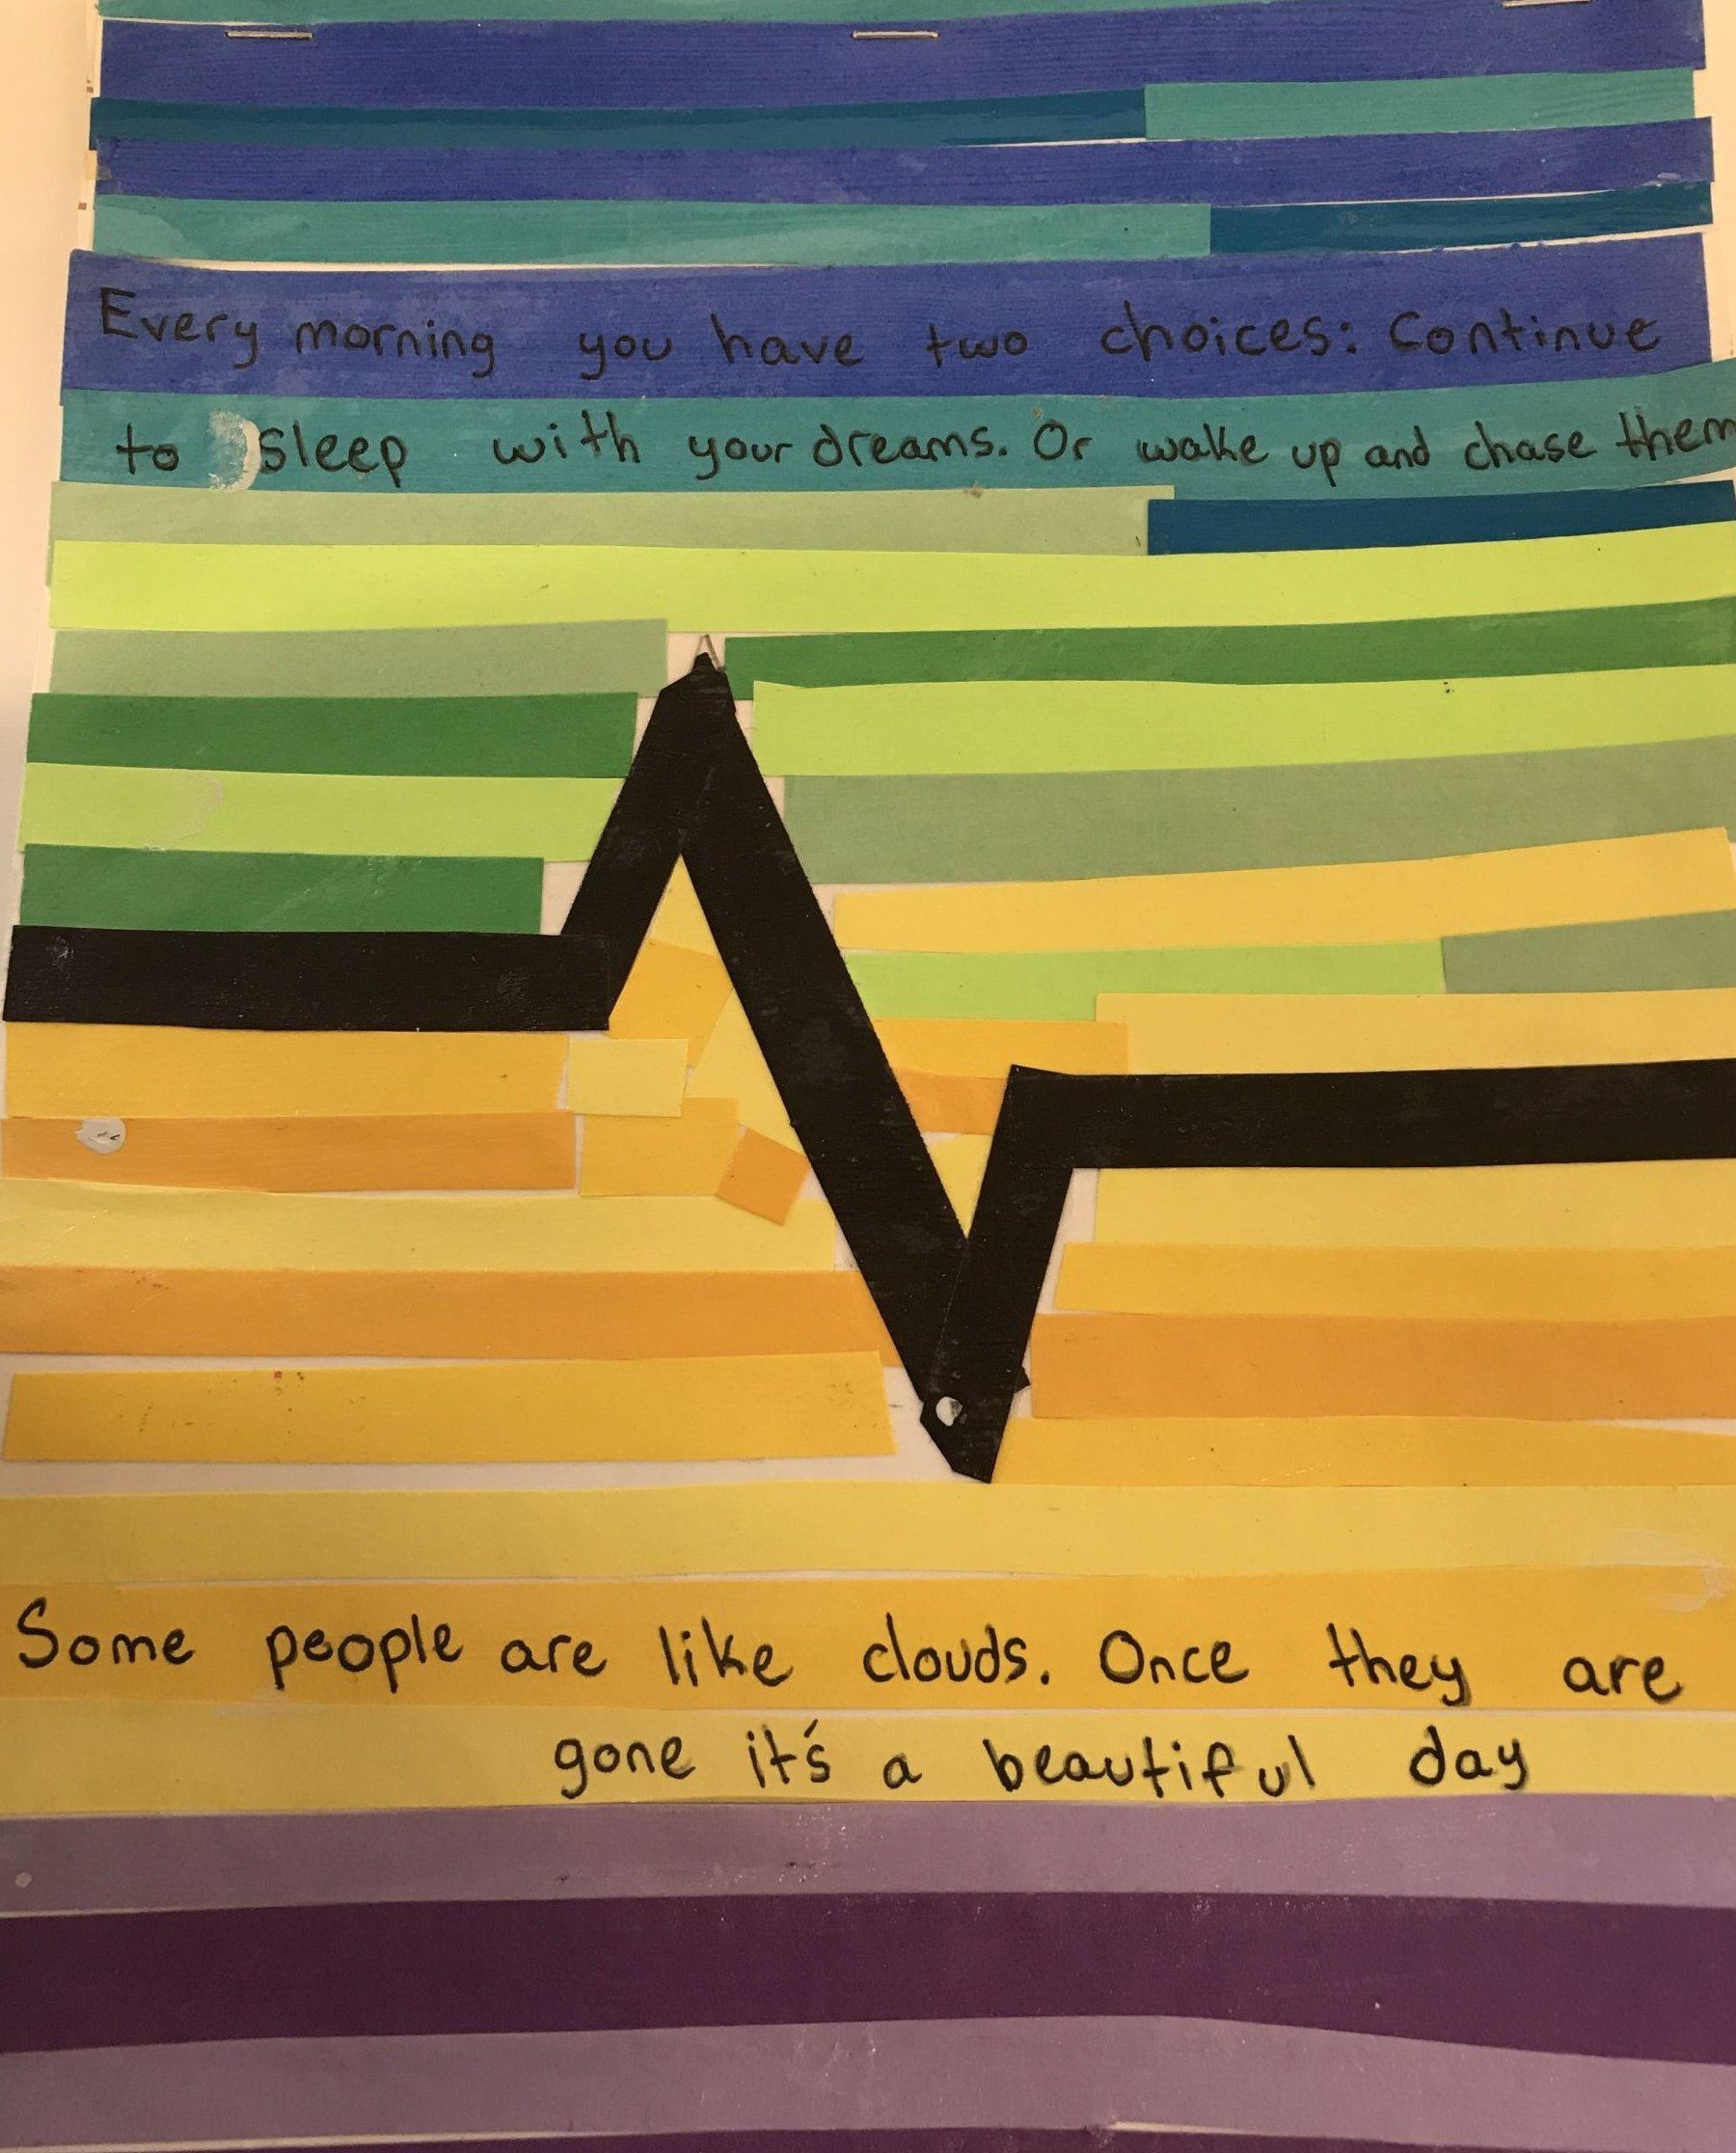 Every morning you have two choices: Continue
to sleep with your dreams. Or wake up and chase them
Some people are like clouds. Once they are
gone it's a beautiful day